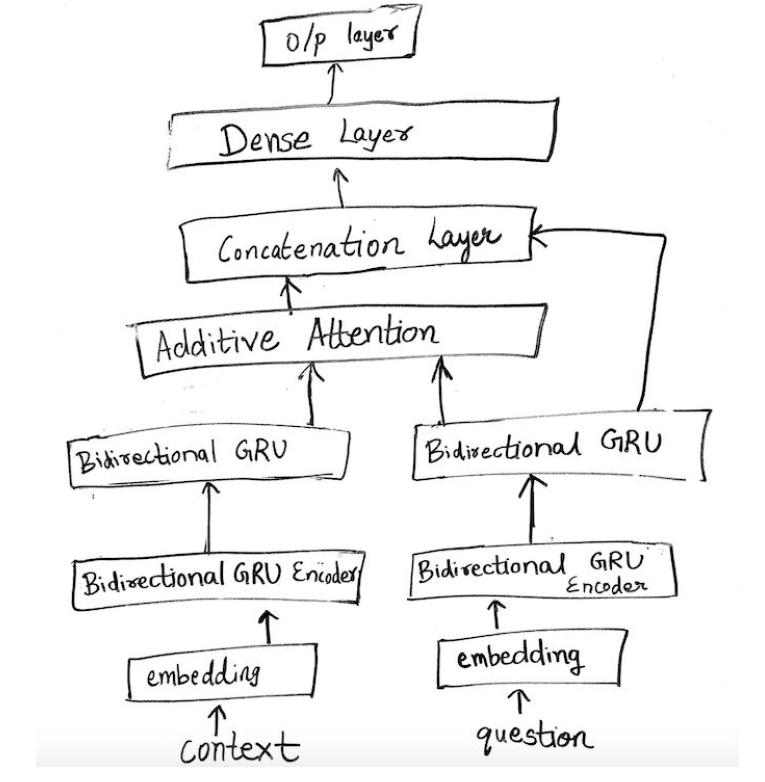 O/p layer
Dense Layer
Concatenation Layer
Additive Attention
Bidirectional GRU
Bidirectional GRU
Bidirectional GRU Encoder
Bidirectional GRU
Encoder
embedding
embedding
context
question